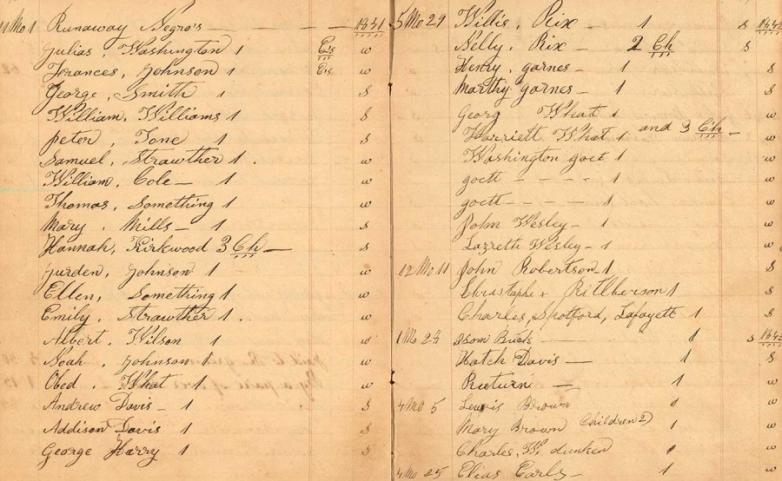 11 Mo 1 Runaway Negro's 1841
Julias, Washington 1 w
Frances, Johnson 1 w
George, Smith 1 s
William, Williams 1 s
peter, Tone 1 s
Samuel, Strawther 1. w
William, Cole 1 w
Thomas, Something 1 w
Mary, Mills 1 s
Hannah, Kirkwood 3 Ch s
Jurden, Johnson 1 w
Ellen, Something 1 w
Emily, Strawther 1.. w
Albert, Wilson 1 w
Noah, Johnson 1 w
Obed, What 1 w
Andrew Davis 1 s
Addison Davis 1 s
George Harry 1 s
5 Mo 29 Willis, Rix 1 s 1842
Nelly, Rix 2 Ch s
Henry, garnes 1 s
Marthy garnes 1 s
Georg What 1 w
Harriett What 1 and 3 Ch w
Washington goet 1 w
goett 1 w
goett 1 w
John Wesley 1 w
Lazrette Wesley 1 w
12 Mo 11 John Robertson 1 s
1 s
Charles, Spotford, Lafayett 1 s
1 Mo 24 1 s
Hatch Davis 1 s
1 w
4 Mo 5 Lewis Brown 1 w
Mary Brown Children 2) 1 w
Charles, W. dunken 1 w
4 Mo 25 Elias Earls 1 w